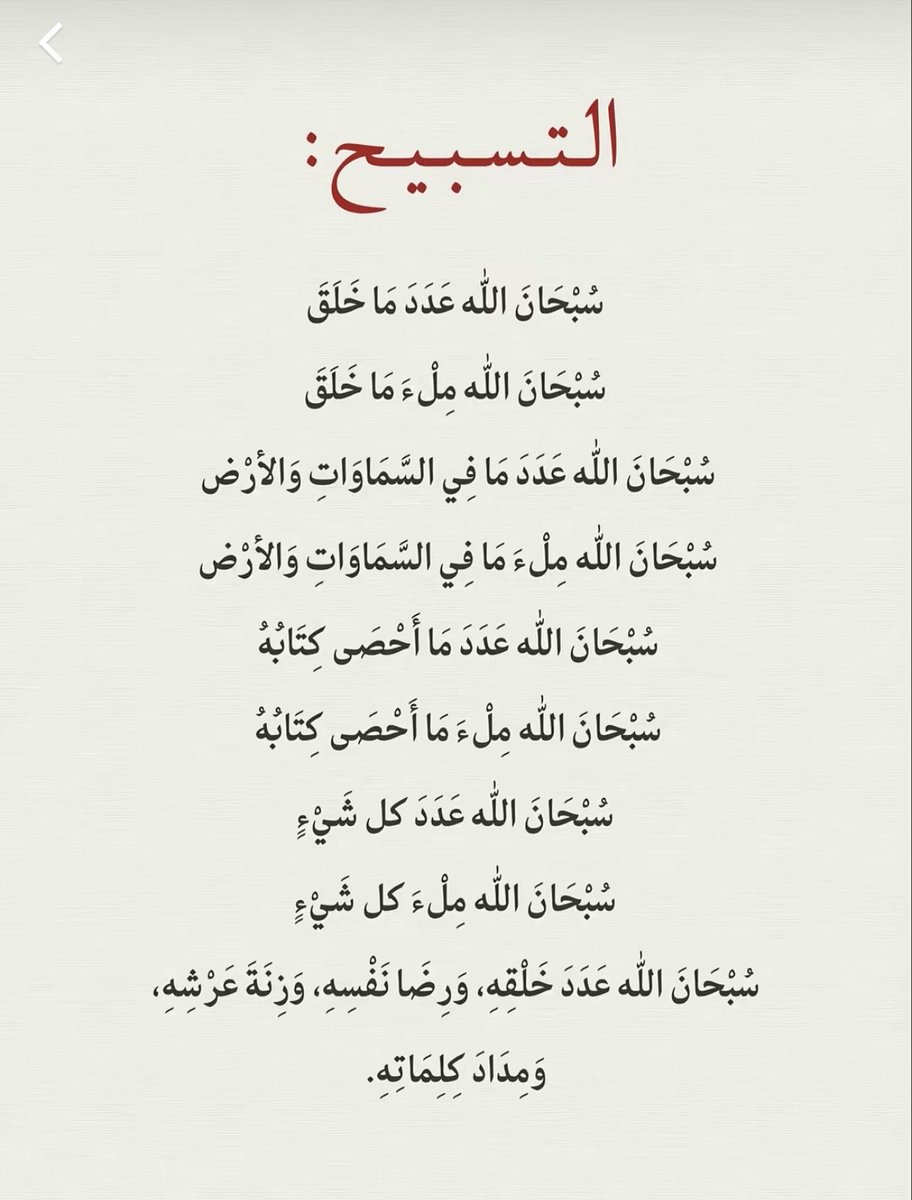 التسبيح:
سُبْحَانَ اللّٰه عَدَدَ مَا خَلَقَ
سُبْحَانَ اللّٰه مِلْءَ مَا خَلَقَ
سُبْحَانَ اللّٰه عَدَدَ مَا فِي السَّمَاوَاتِ وَالأرْض
سُبْحَانَ اللّٰه مِلْءَ مَا فِي السَّمَاوَاتِ وَالأرْض
سُبْحَانَ اللّٰه عَدَدَ مَا أَحْصَى كِتَابُهُ
سُبْحَانَ اللّٰه مِلْءَ مَا أَحْصَى كِتَابُهُ
سُبْحَانَ اللّٰه عَدَدَ كل شَيْءٍ
سُبْحَانَ اللّٰه مِلْءَ كل شَيْءٍ
سُبْحَانَ اللّٰه عَدَدَ خَلْقِهِ، وَرِضَا نَفْسِهِ، وَزِنَةَ عَرْشِهِ،
وَمِدَادَ كِلِمَاتِهِ.